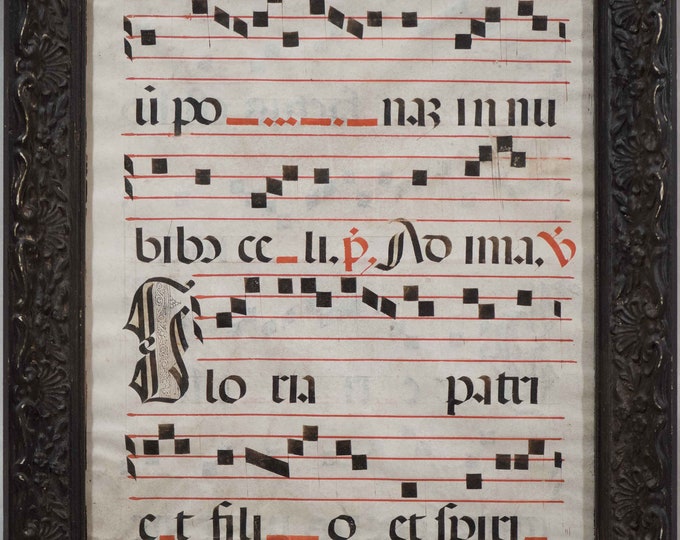 ū po naʒ in nu
bibꝰ ce li. p̄, Ad ima, v̄
Glo ria patri
et fili o et spiri